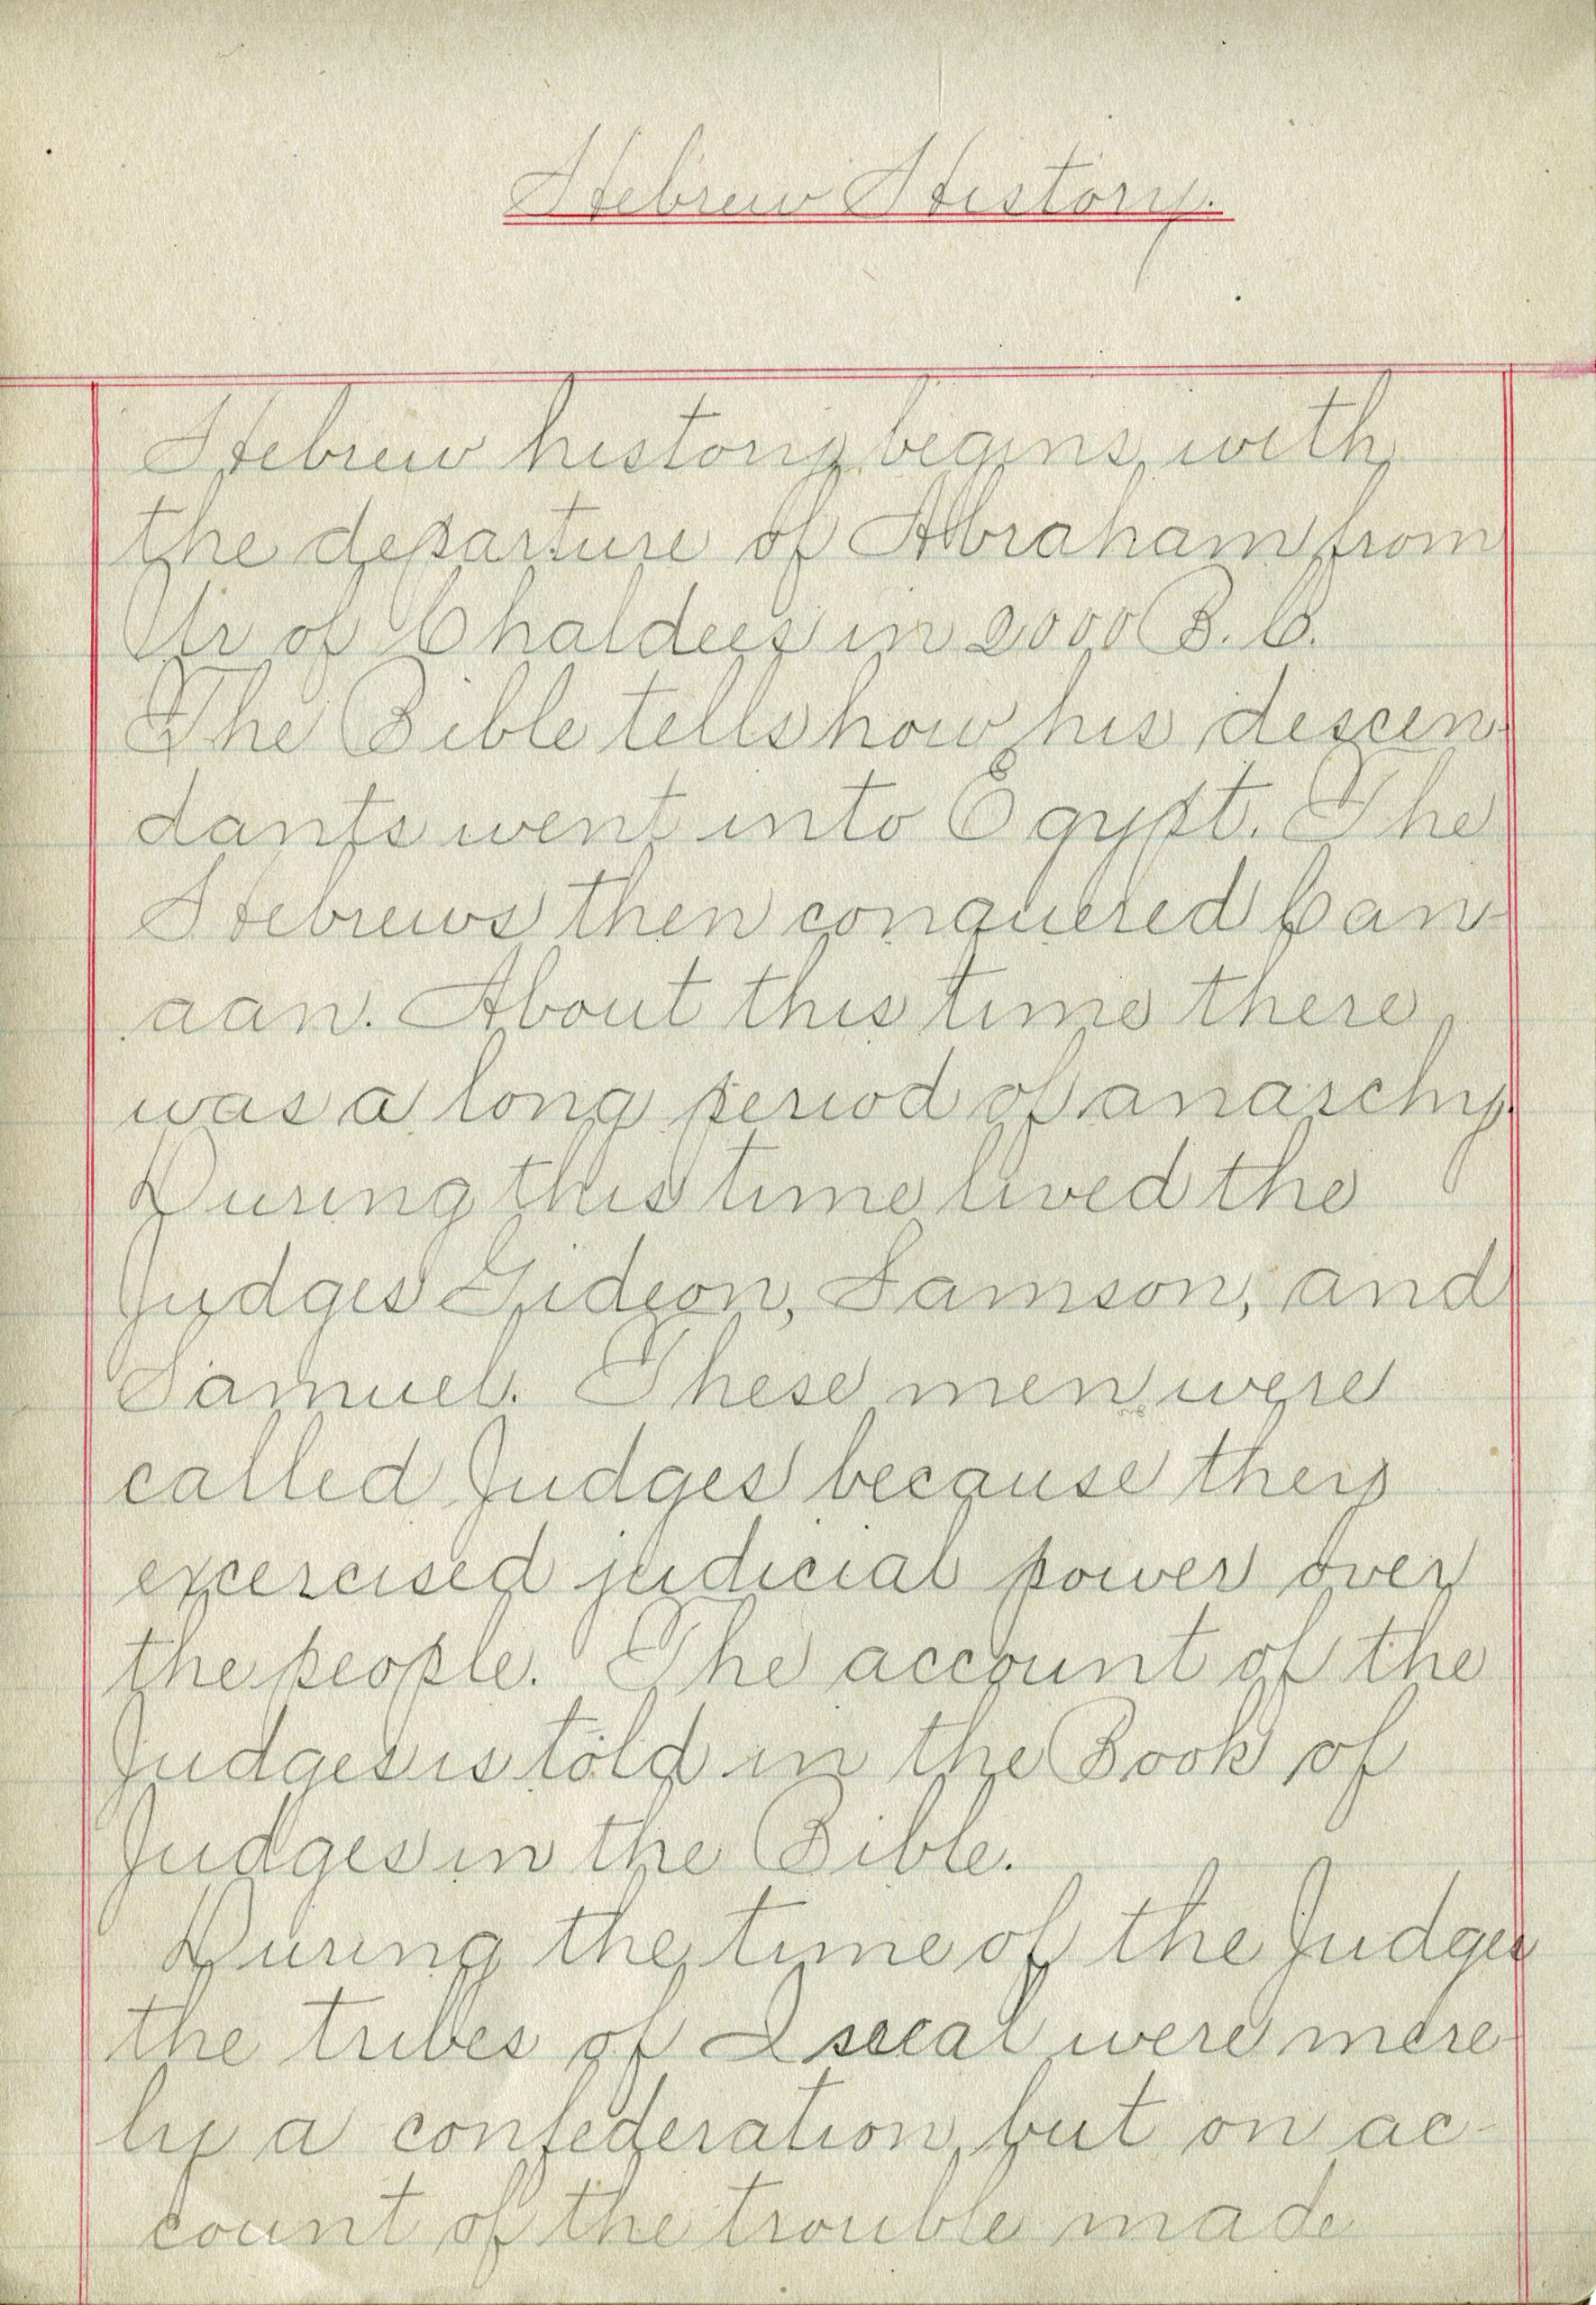 Hebrew History.
Hebrew history begins with
the departure of Abraham from
Ur of Chaldees in 2000 B.C.
The Bible tells how his descen-
dants went into Egypt. The
Hebrews then conquered Can-
aan. About this time there
was a long period of anarchy.
During this time lived the
Judges Gideon, Samson, and
Samuel. These men were
called Judges because they
excercised judicial power over
the people. The account of the
Judges is told in the Book of
Judges in the Bible.
During the time of the Judges
the tribes of Iseeal were mere-
ly a confederation, but on ac-
count of the trouble made